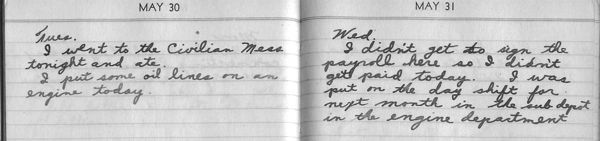 MAY 30
Tues.
I went to the Civilian Mess
tonight and ate.
I put some oil lines on an
engine today.
MAY 31
Wed.
I didn't get to sign the
payroll here so I didn't
get paid today. I was
put on the day shift for
next month in the sub depot
in the engine department